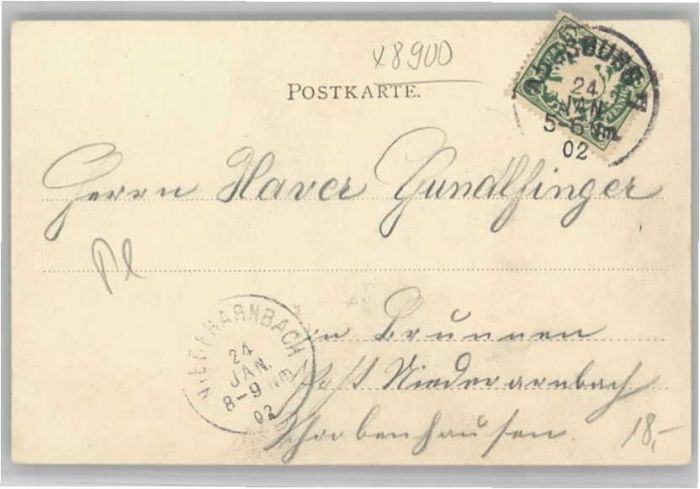 x8900
POSTKARTE.
AUGSBURG
24
JAN
5-6 Nm
02
Herrn Xaver Gundlfinger
Pl
in Brunnen
Post Niederarnbach
Schrobenhausen.
NIEDERARNBACH
24
JAN.
8-9 Nm
02
18,-